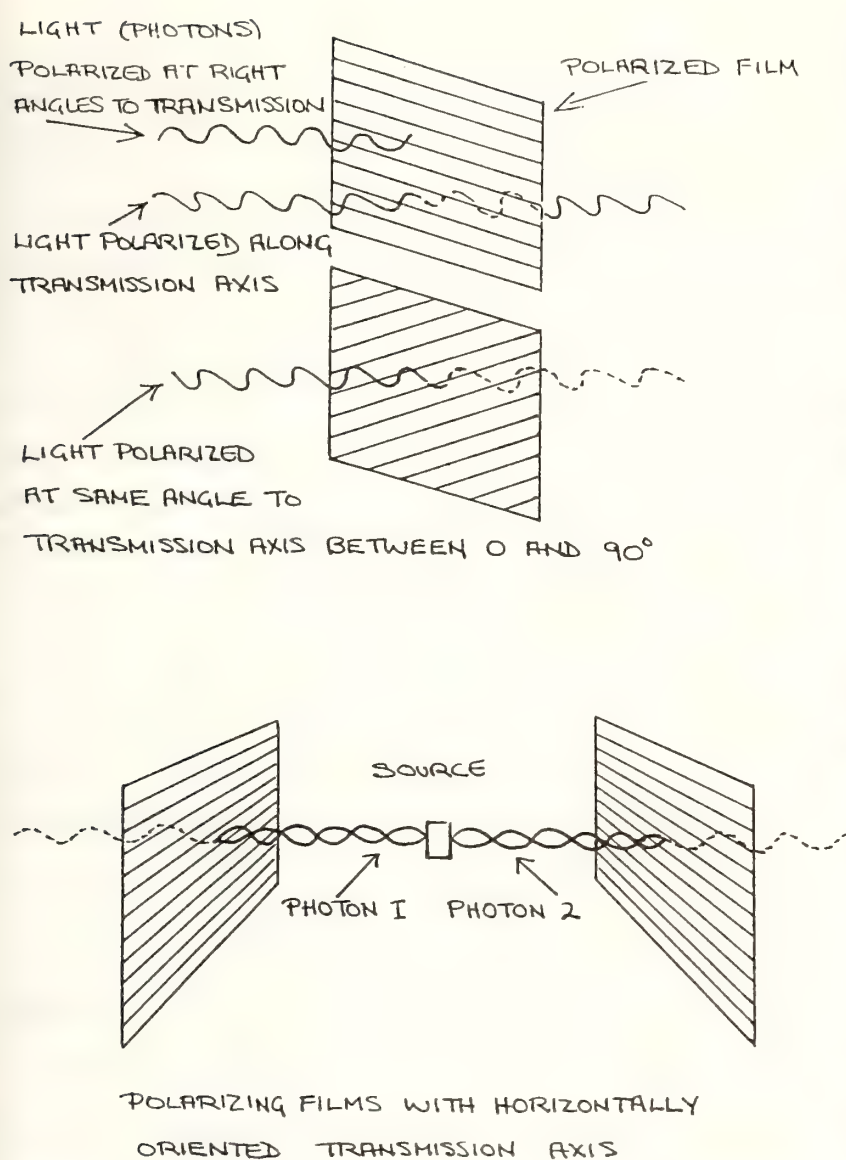 LIGHT (PHOTONS)
POLARIZED AT RIGHT
ANGLES TO TRANSMISSION
POLARIZED FILM
LIGHT POLARIZED ALONG
TRANSMISSION AXIS
LIGHT POLARIZED
AT SAME ANGLE TO
TRANSMISSION AXIS BETWEEN 0 AND 90°
SOURCE
PHOTON I PHOTON 2
POLARIZING FILMS WITH HORIZONTALLY
ORIENTED TRANSMISSION AXIS